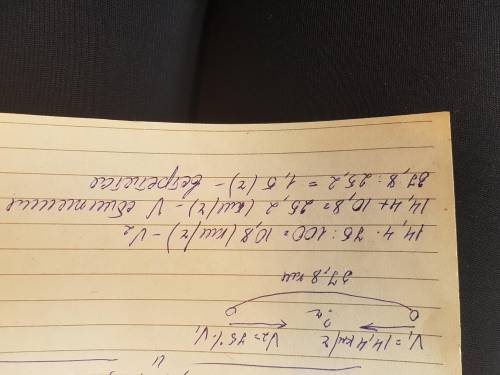 V₁=14,4 км/ч V₂=75%V₁
? ч
37,8 км
14,4 · 75 : 100 = 10,8 (км/ч) - V₂
14,4 + 10,8 = 25,2 (км/ч) - V сближения
37,8 : 25,2 = 1,5 (ч) - встретятся